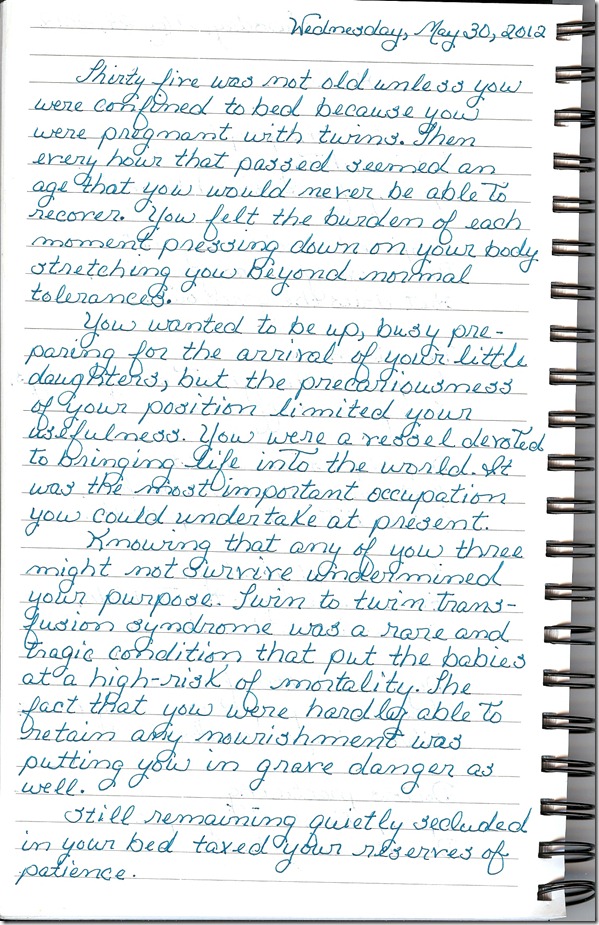 Wednesday, May 30, 2012
Thirty five was not old unless you
were confined to bed because you
were pregnant with twins. Then
every hour that passed seemed an
age that you would never be able to
recover. You felt the burden of each
moment pressing down on your body
stretching you beyond normal
tolerances.
You wanted to be up, busy pre-
paring for the arrival of your little
daughters, but the precariousness
of your position limited your
usefulness. You were a vessel devoted
to bringing life into the world. It
was the most important occupation
you could undertake at present.
Knowing that any of you three
might not survive undermined
your purpose. Twin to twin trans-
fusion syndrome was a rare and
tragic condition that put the babies
at a high-risk of mortality. The
fact that you were hardly able to
retain any nourishment was
putting you in grave danger as
well.
Still remaining quietly secluded
in your bed taxed your reserves of
patience.